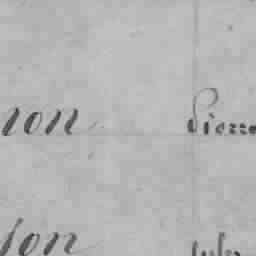 non Pierre
son Jules